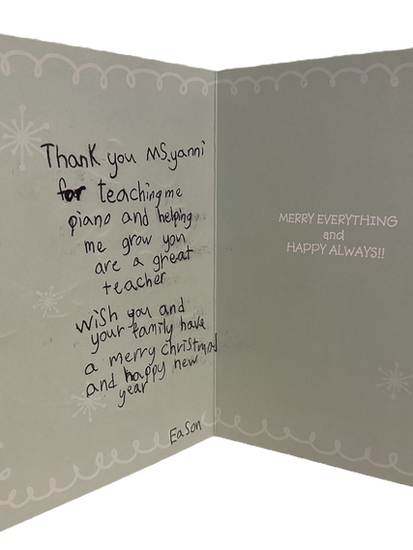 Thank you Ms.yanni
for teaching me
piano and helping
me grow you
are a great
teacher
wish you and
your family have
a merry christmad
and happy new
year
Eason
MERRY EVERYTHING
and
HAPPY ALWAYS!!